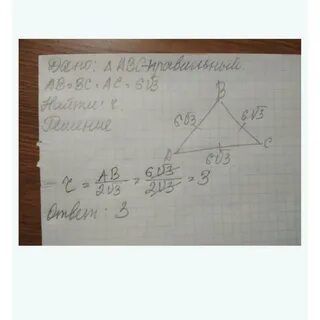 Дано: △ ABC-правильный.
AB=BC=AC=6√3
Найти: r.
Решение
B
6√3 6√3
A C
6√3
r = AB/2√3 = 6√3/2√3 = 3
Ответ: 3